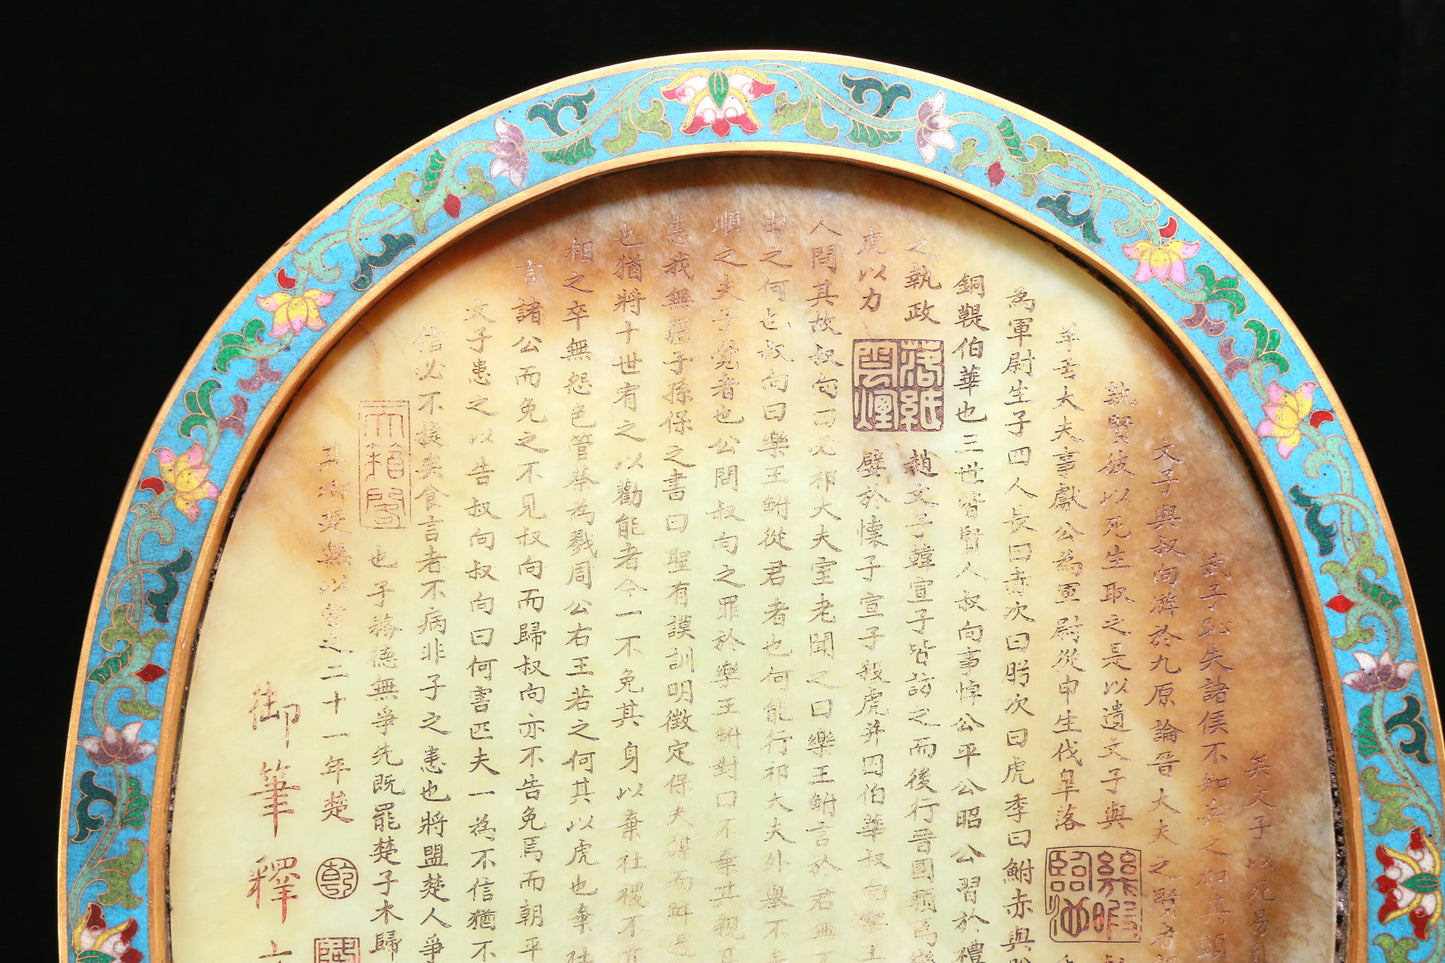 矣文子以死易
武子恥失諸侯不知兵之相
文子與叔向游於九原論晉大夫之賢者
執賢彼以死生取之是以遺文子與
羊舌大夫事獻公為軍尉從申生伐皋落
為軍尉生子四人長曰赤次曰肸次曰虎季曰鮒赤與
銅鞮伯華也三世皆賢人叔向事悼公平公昭公習於禮
之執政趙文子韓宣子皆訪之而後行晉國賴為
洛紙雲煙
虎以力嬖於懷子宣子殺虎并囚伯華叔向樂王
人問其故叔向曰必祁大夫室老聞之曰樂王鮒言於君無
由之何也叔向曰樂王鮒從君者也何能行祁大夫外舉不
順之夫子覺者也公問叔向之罪於樂王鮒對曰不棄其親
惠我無疆子孫保之書曰聖有謨訓明徵定保夫謀而鮮過
也猶將十世宥之以勸能者今一不免其身以棄社稷不
相之卒無怨色管蔡為戮周公右王若之何其以虎也棄社
言諸公而免之不見叔向而歸叔向亦不告免焉而朝平
文子患之以告叔向叔向曰何害匹夫一為不信猶不
信必不捷矣食言者不病非子之患也將盟楚人爭
也子務德無爭先既罷楚子木歸
其卿楚無以當之二十一年楚
御筆釋